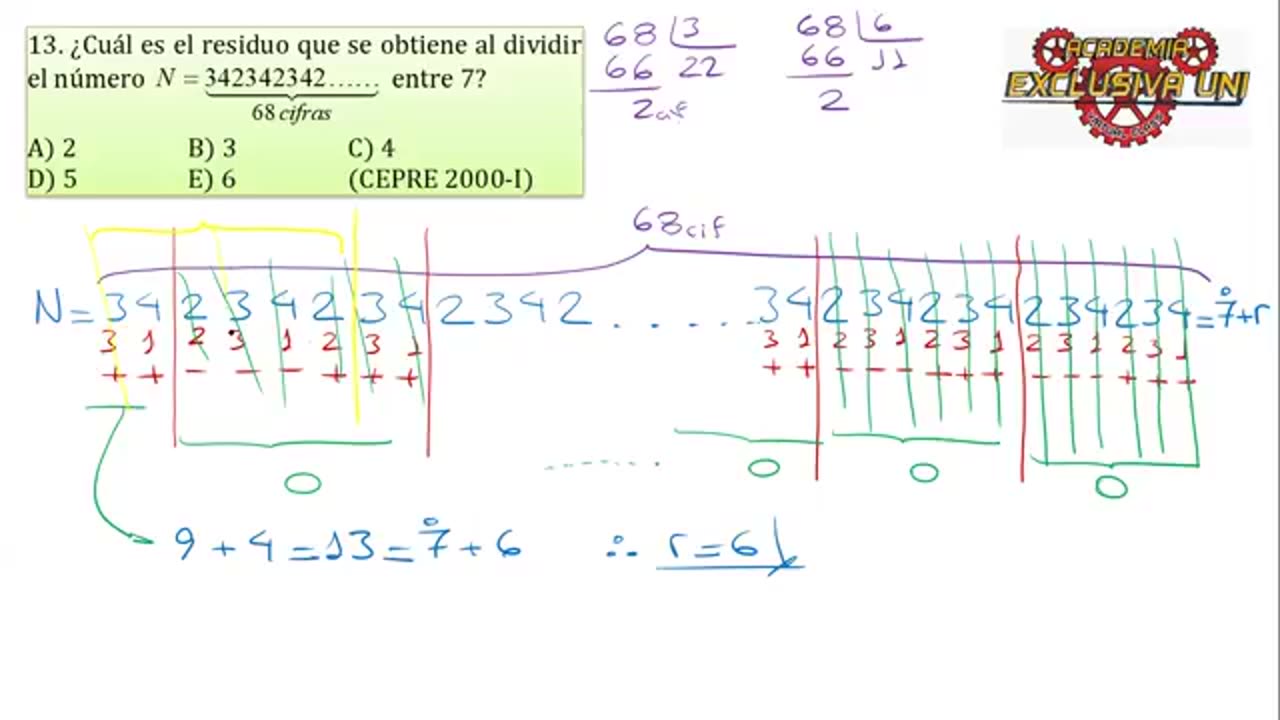 13. ¿Cuál es el residuo que se obtiene al dividir
el número N = 342342342...... entre 7?
68 cifras
A) 2 B) 3 C) 4
D) 5 E) 6 (CEPRE 2000-I)
68 3
66 22
2cif
68 6
66 11
2
ACADEMIA
EXCLUSIVA UNI
VIRTUAL CLASS
68cif
N=34234234 2342......34234234234234=7̊+r
3 1 2 3 1 2 3 1 3 1 2 3 1 2 3 1 2 3 1 2 3 1
+ + - - - + + + + + - - - - + + - - - + + -
0 ...... 0 0 0
9 + 4 = 13 = 7̊ + 6 ∴ r = 6